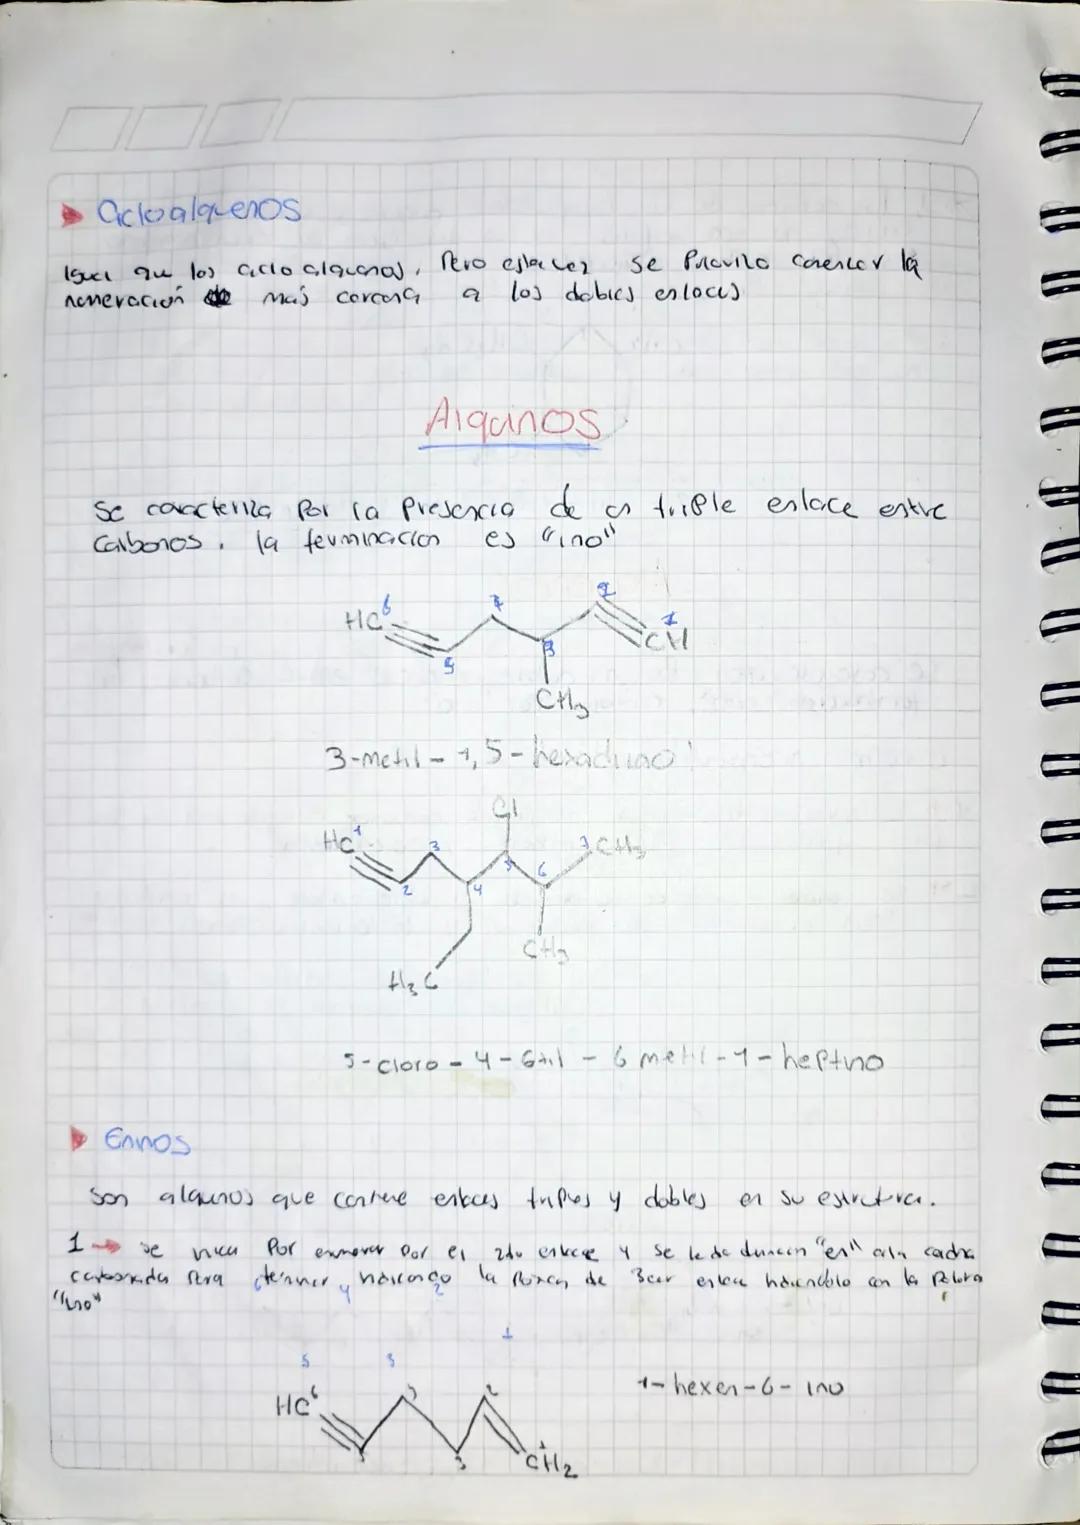 Cicloalquenos
Igual que los ciclo alquanos, Pero esta vez se Prioriza comenzar la
numeración de mas cercana a los dobles enlaces
Alquinos
Se caracteriza Por la Presencia de un triple enlace entre
Carbonos. la terminacion es "ino"
HC 6 5 4 3 2 1 CH
CH3
3-metil-1,5-hexadiino
Cl
HC 1 2 3 4 5 6 7 CH3
CH3
H3C
5-cloro-4-Etil-6 metil-1-heptino
Eninos
Son alquinos que contiene enlaces triples y dobles en su estructura.
1 → se inicia Por enumerar por el 2do enlace y se le da "en" a la cadena
carbonada Para terminar haciendo la de 3cer enlace haciendolo con la Palabra
"ino"
5 3 1
HC 6 3 2 1 CH2
1-hexen-6-ino